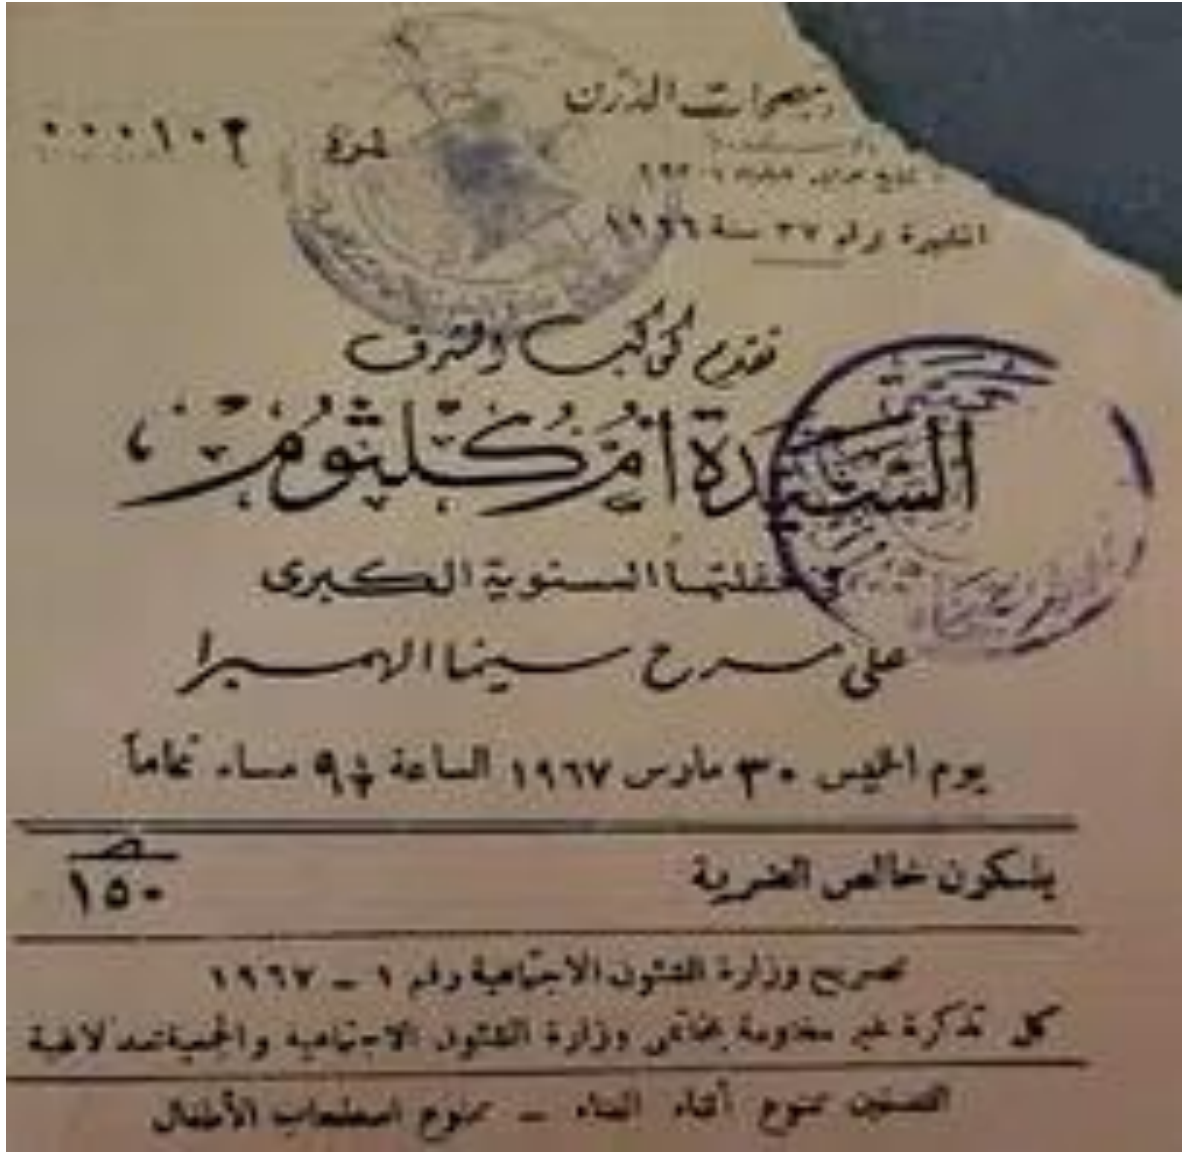 الدرن
نمرة ٠٠٠١٠٢
رقم ٣٧ سنة ١٩٦٦
تقدم كوكب الشرق
السَّيِّدَة أمُّ كُلثوُم
في حفلتها السنوية الكبرى
على مسرح سينما الهمبرا
يوم الخميس ٣٠ مارس ١٩٦٧ الساعة ٩½ مساء تماماً
بلكون خالص الضريبة ١٥٠
تصريح وزارة الشئون الاجتماعية رقم ١ - ١٩٦٧
كل تذكرة غير مختومة بخاتمى وزارة الشئون الاجتماعية والجمعية تعد لاغية
التدخين ممنوع أثناء الغناء - ممنوع اصطحاب الأطفال